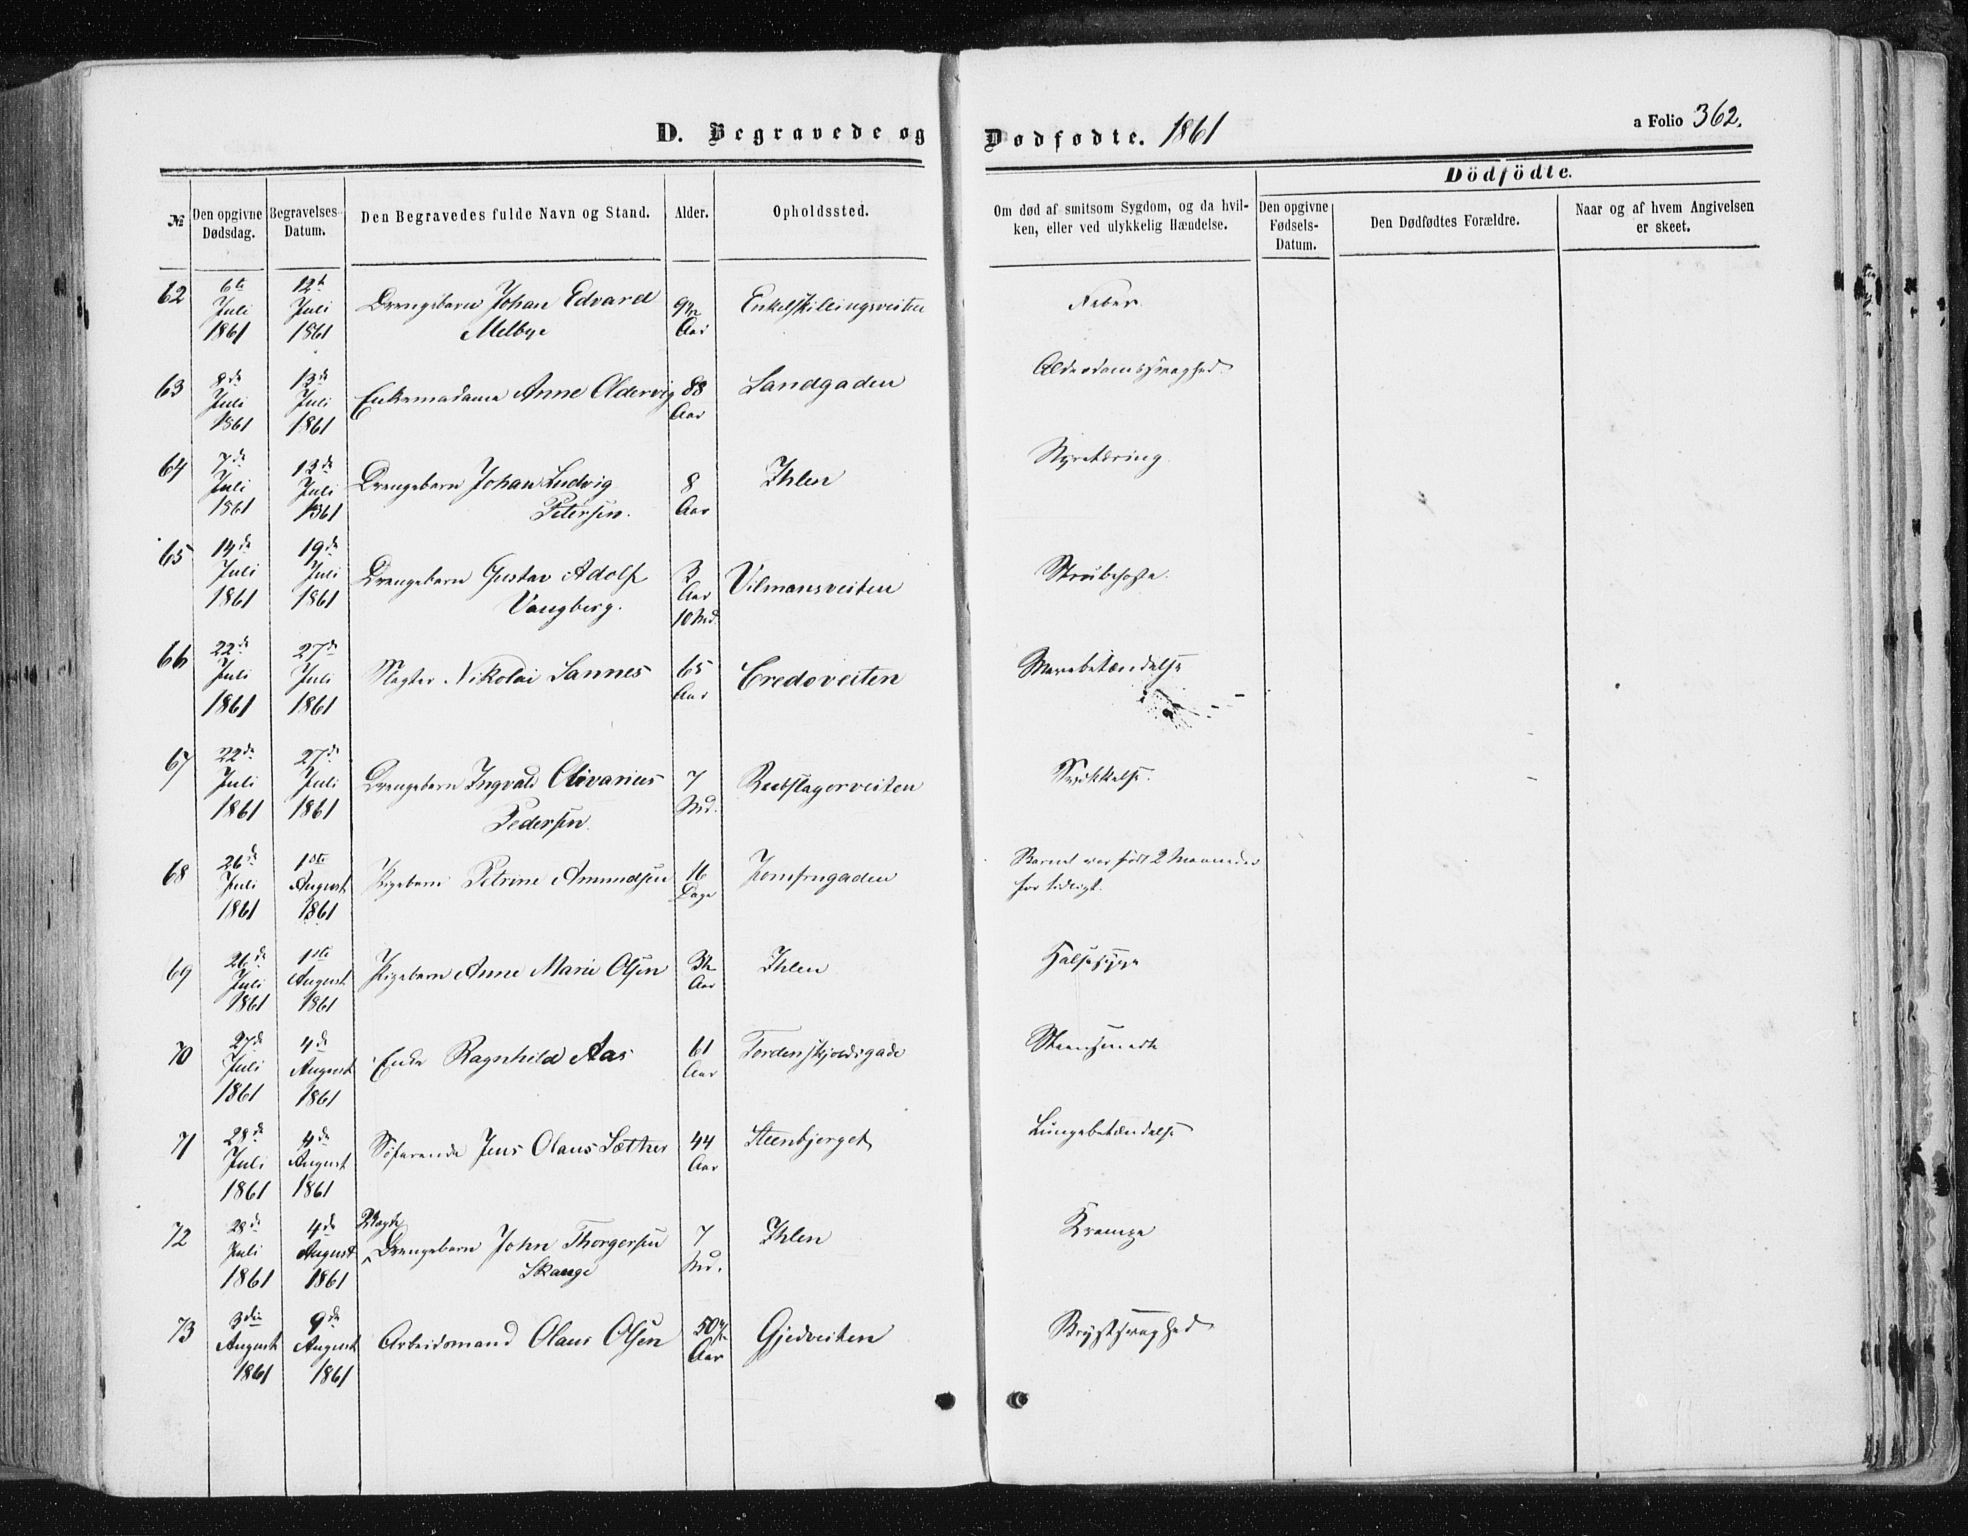 D. Begravede og Dødfødte. 1861
a Folio 362.
Dödfödte.
№
Den opgivne Dødsdag.
Begravelses-Datum.
Den Begravedes fulde Navn og Stand.
Alder.
Opholdssted.
Om død af smitsom Sygdom, og da hvil-
ken, eller ved ulykkelig Hændelse.
Den opgivne Fødsels-Datum.
Den Dødfødtes Forældre.
Naar og af hvem Angivelsen
er skeet.
62 6te Juli 1861 12te Juli 1861 Drengebarn Johan Edvard Melbye Aar Enkelskillingsveiten Feber
63 8de Juli 1861 13de Juli 1861 Enkemadame Anne Oldervig 88 Aar Sandgaden Alderdomssvaghed
64 7de Juli 1861 13de Juli 1861 Drengebarn Johan Ludvig Petersen. 8 Aar Ihlen Nyretæring
65 14de Juli 1861 19de Juli 1861 Drengebarn Gustav Adolf Vangberg. 3 Aar 10 Md. Vilmansveiten Strubehoste.
66 22de Juli 1861 27de Juli 1861 Slagter Nikolai Sannes 65 Aar Credoveiten Mavebetændelse
67 22de Juli 1861 27de Juli 1861 Drengebarn Ingvald Olivarius Pedersen. 7 Md. Reebslagerveiten Svækkelse.
68 26de Juli 1861 1ste August 1861 Pigebarn Petrine Amundsen 16 Dage Jomfrugaden Barnet var født 2 Maaneder for tidligt.
69 26de Juli 1861 1ste August 1861 Pigebarn Anne Marie Olsen Aar Ihlen Halssyge
70 27de Juli 1861 4de August 1861 Enke Ragnhild Aas 61 Aar Tordenskjoldsgade Steensmerte
71 28de Juli 1861 4de August 1861 Söfarende Jens Olaus Sæther 44 Aar Steenbjerget Lungebetændelse
72 28de Juli 1861 4de August 1861 Drengebarn John Thorgersen Skauge 7 Md. Ihlen Krampe
73 3die August 1861 9de August 1861 Arbeidsmand Olaus Olsen 50 Aar Gjedveiten Brystsvaghed